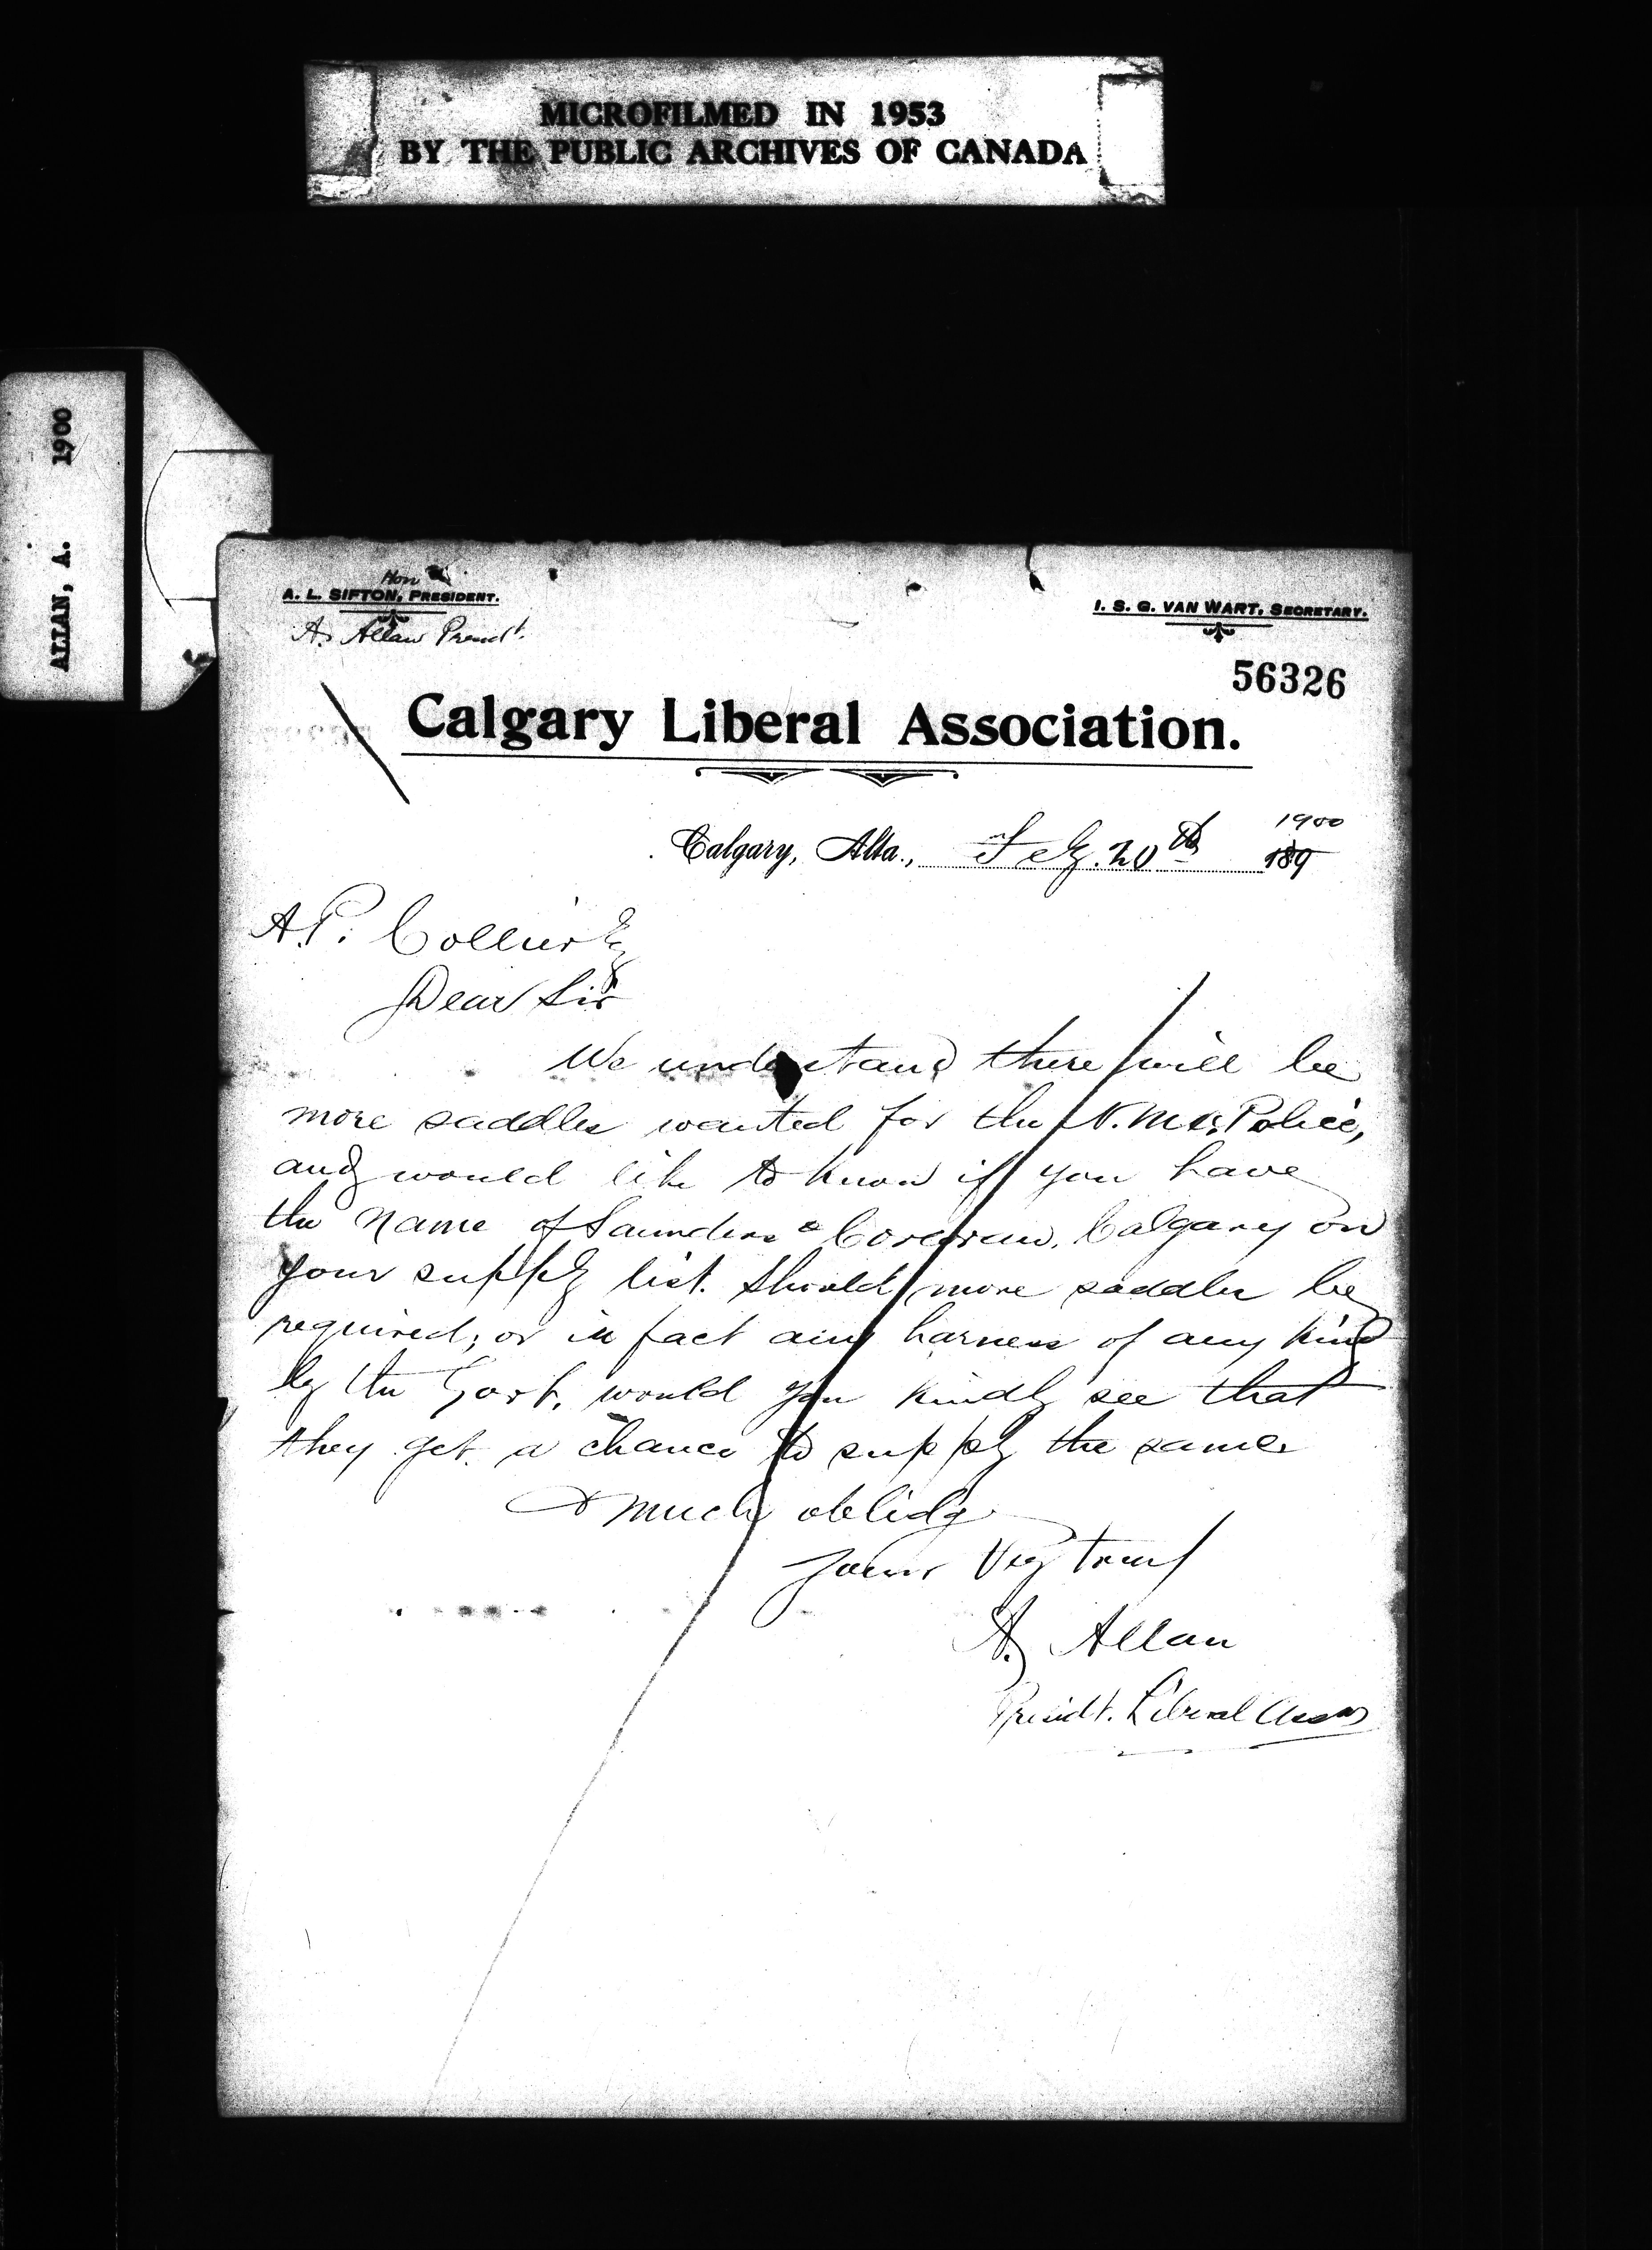 MICROFILMED IN 1953
BY THE PUBLIC ARCHIVES OF CANADA
ALLAN, A. 1900
Hon
A. L. SIFTON, PRESIDENT.
A. Allan Presidt.
I. S. G. VAN WART, SECRETARY.
56326
Calgary Liberal Association.
1900
Calgary, Alta., Feby. 20th 189
A.P. Collier Esq
Dear Sir
We understand there will be
more saddles wanted for the N.M. Police,
and would like to know if you have
the name of Saunders & Corcoran, Calgary on
your supply list. Should more saddles be
required, or in fact any harness of any kind
by the Govt, would you kindly see that
they get a chance to supply the same
& much oblidge
Yours Very truly
A. Allan
Presidt. Liberal Assn